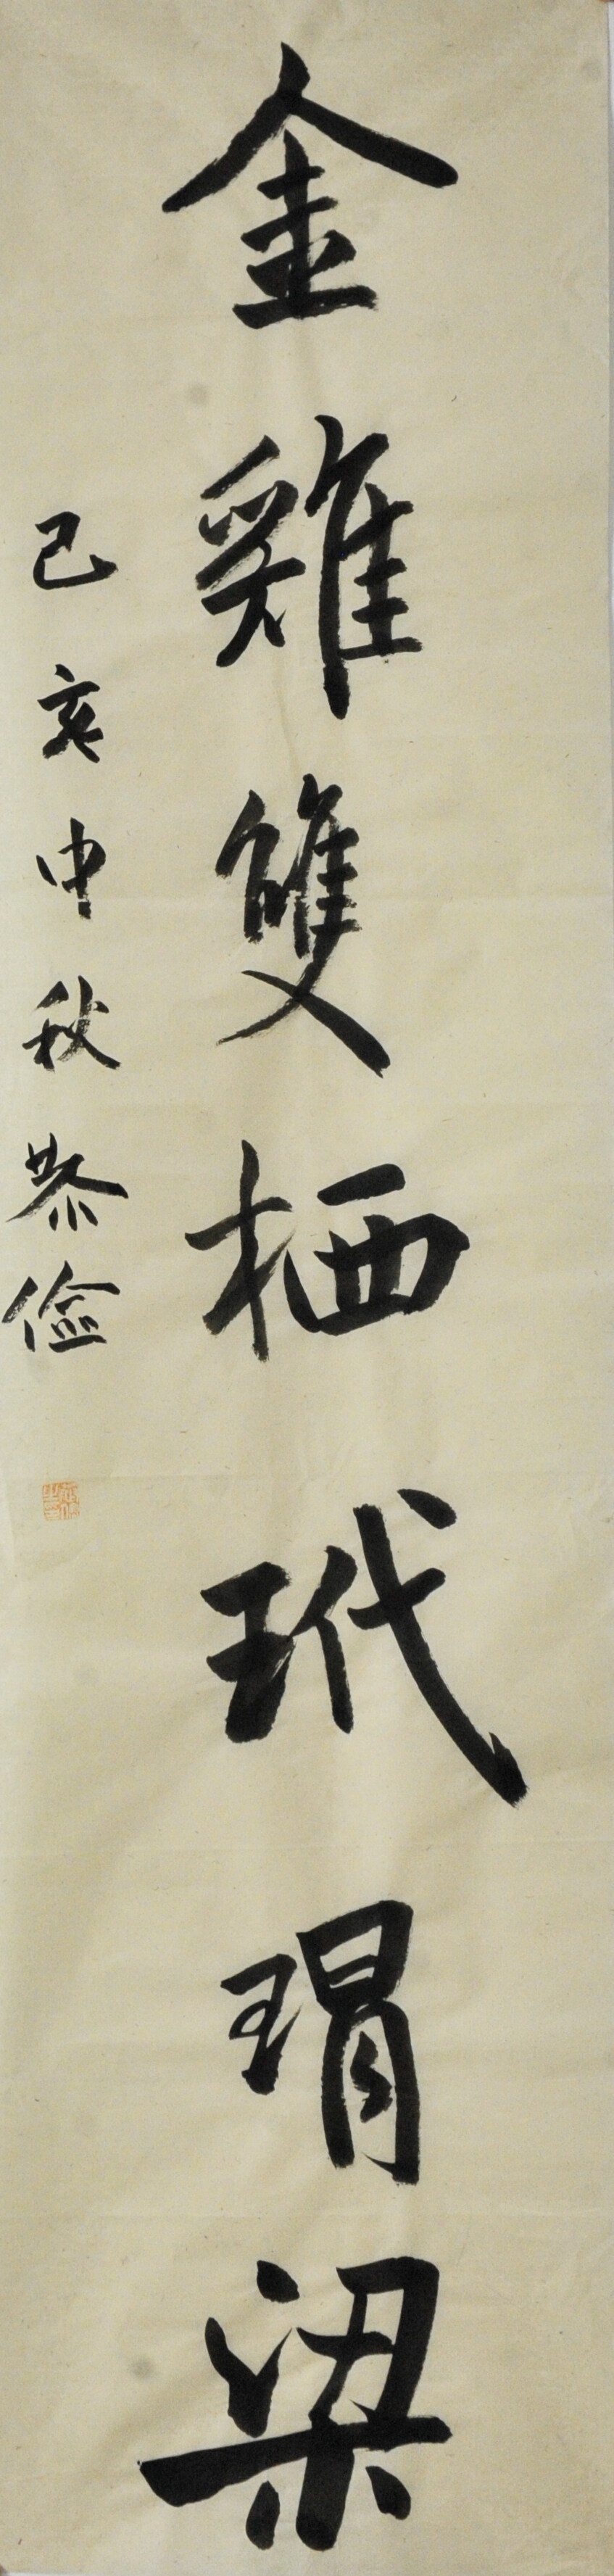 金雞雙栖玳瑁梁
己亥中秋恭儉